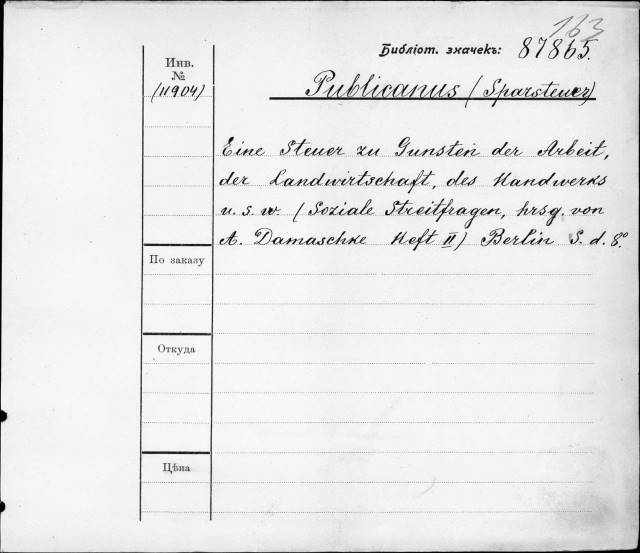 163
Библіот. значекъ: 87865.
Инв.
№
(11904)
Publicanus (Sparsteuer)
Eine Steuer zu Gunsten der Arbeit,
der Landwirtschaft, des Handwerks
u. s. w. (Soziale Streitfragen, hrsg. von
A. Damaschke Heft II) Berlin S. d. 8.°
По заказу
Откуда
Цѣна